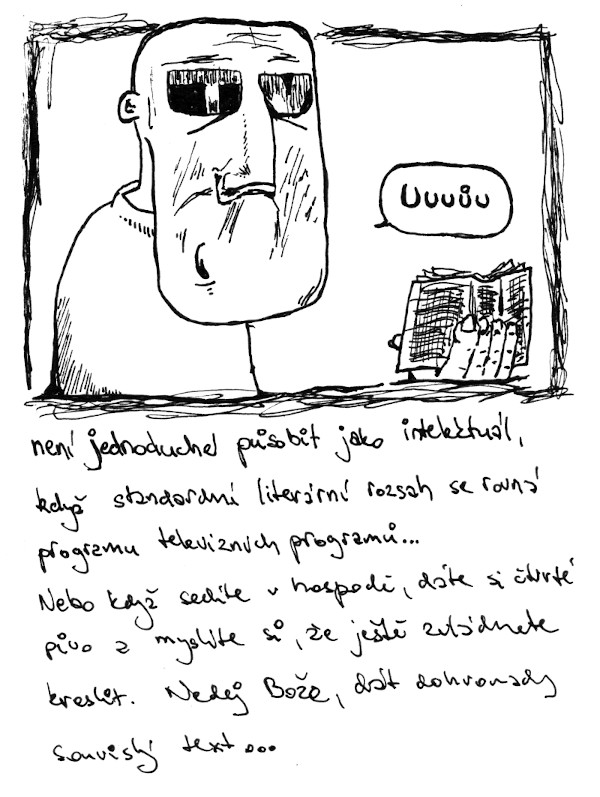 Uuuůu
není jednoduché působit jako intelektuál,
když standardní literární rozsah se rovná
programu televizních programů...
Nebo když sedíte v hospodě, dáte si čtvrté
pivo a myslíte si, že ještě zvládnete
kreslit. Nedej Bože, dát dohromady
souvislý text...